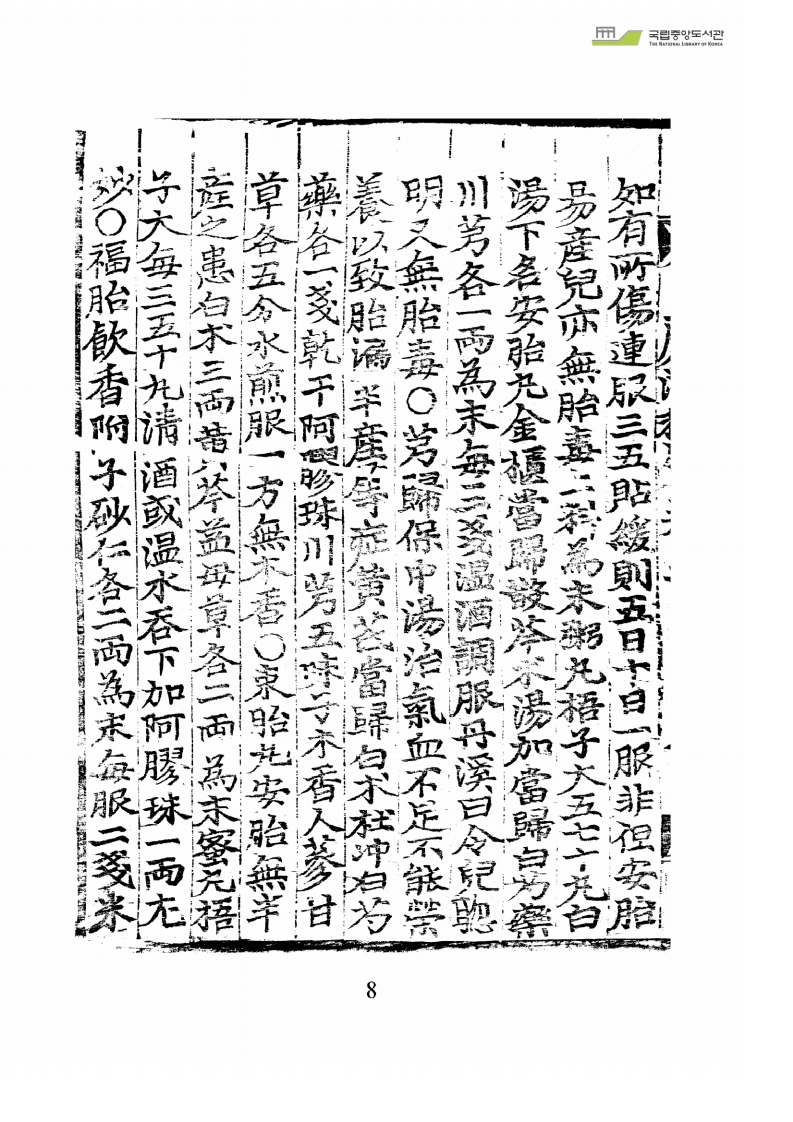 국립중앙도서관
THE NATIONAL LIBRARY OF KOREA
如有所傷連服三五貼緩則五日十日一服非但安胎
易産兒亦無胎毒二料為末粥丸梧子大五七十丸白
湯下名安胎丸金櫃當歸散芩朮湯加當歸白芍藥
川芎各一兩為末每三戔温酒調服丹溪曰令兒聦
明又無胎毒〇芎歸保中湯治氣血不足不能榮
養以致胎漏半産等症黄芪當歸白朮杜冲白芍
藥各一戔乾干阿膠珠川芎五味子木香人蔘甘
草各五分水煎服一方無木香〇束胎丸安胎無半
産之患白朮三兩黄芩益母草各二兩為末蜜丸梧
子大每三五十丸清酒或温水吞下加阿膠珠一兩尤
妙〇福胎飲香附子砂仁各二兩為末每服二戔米
8